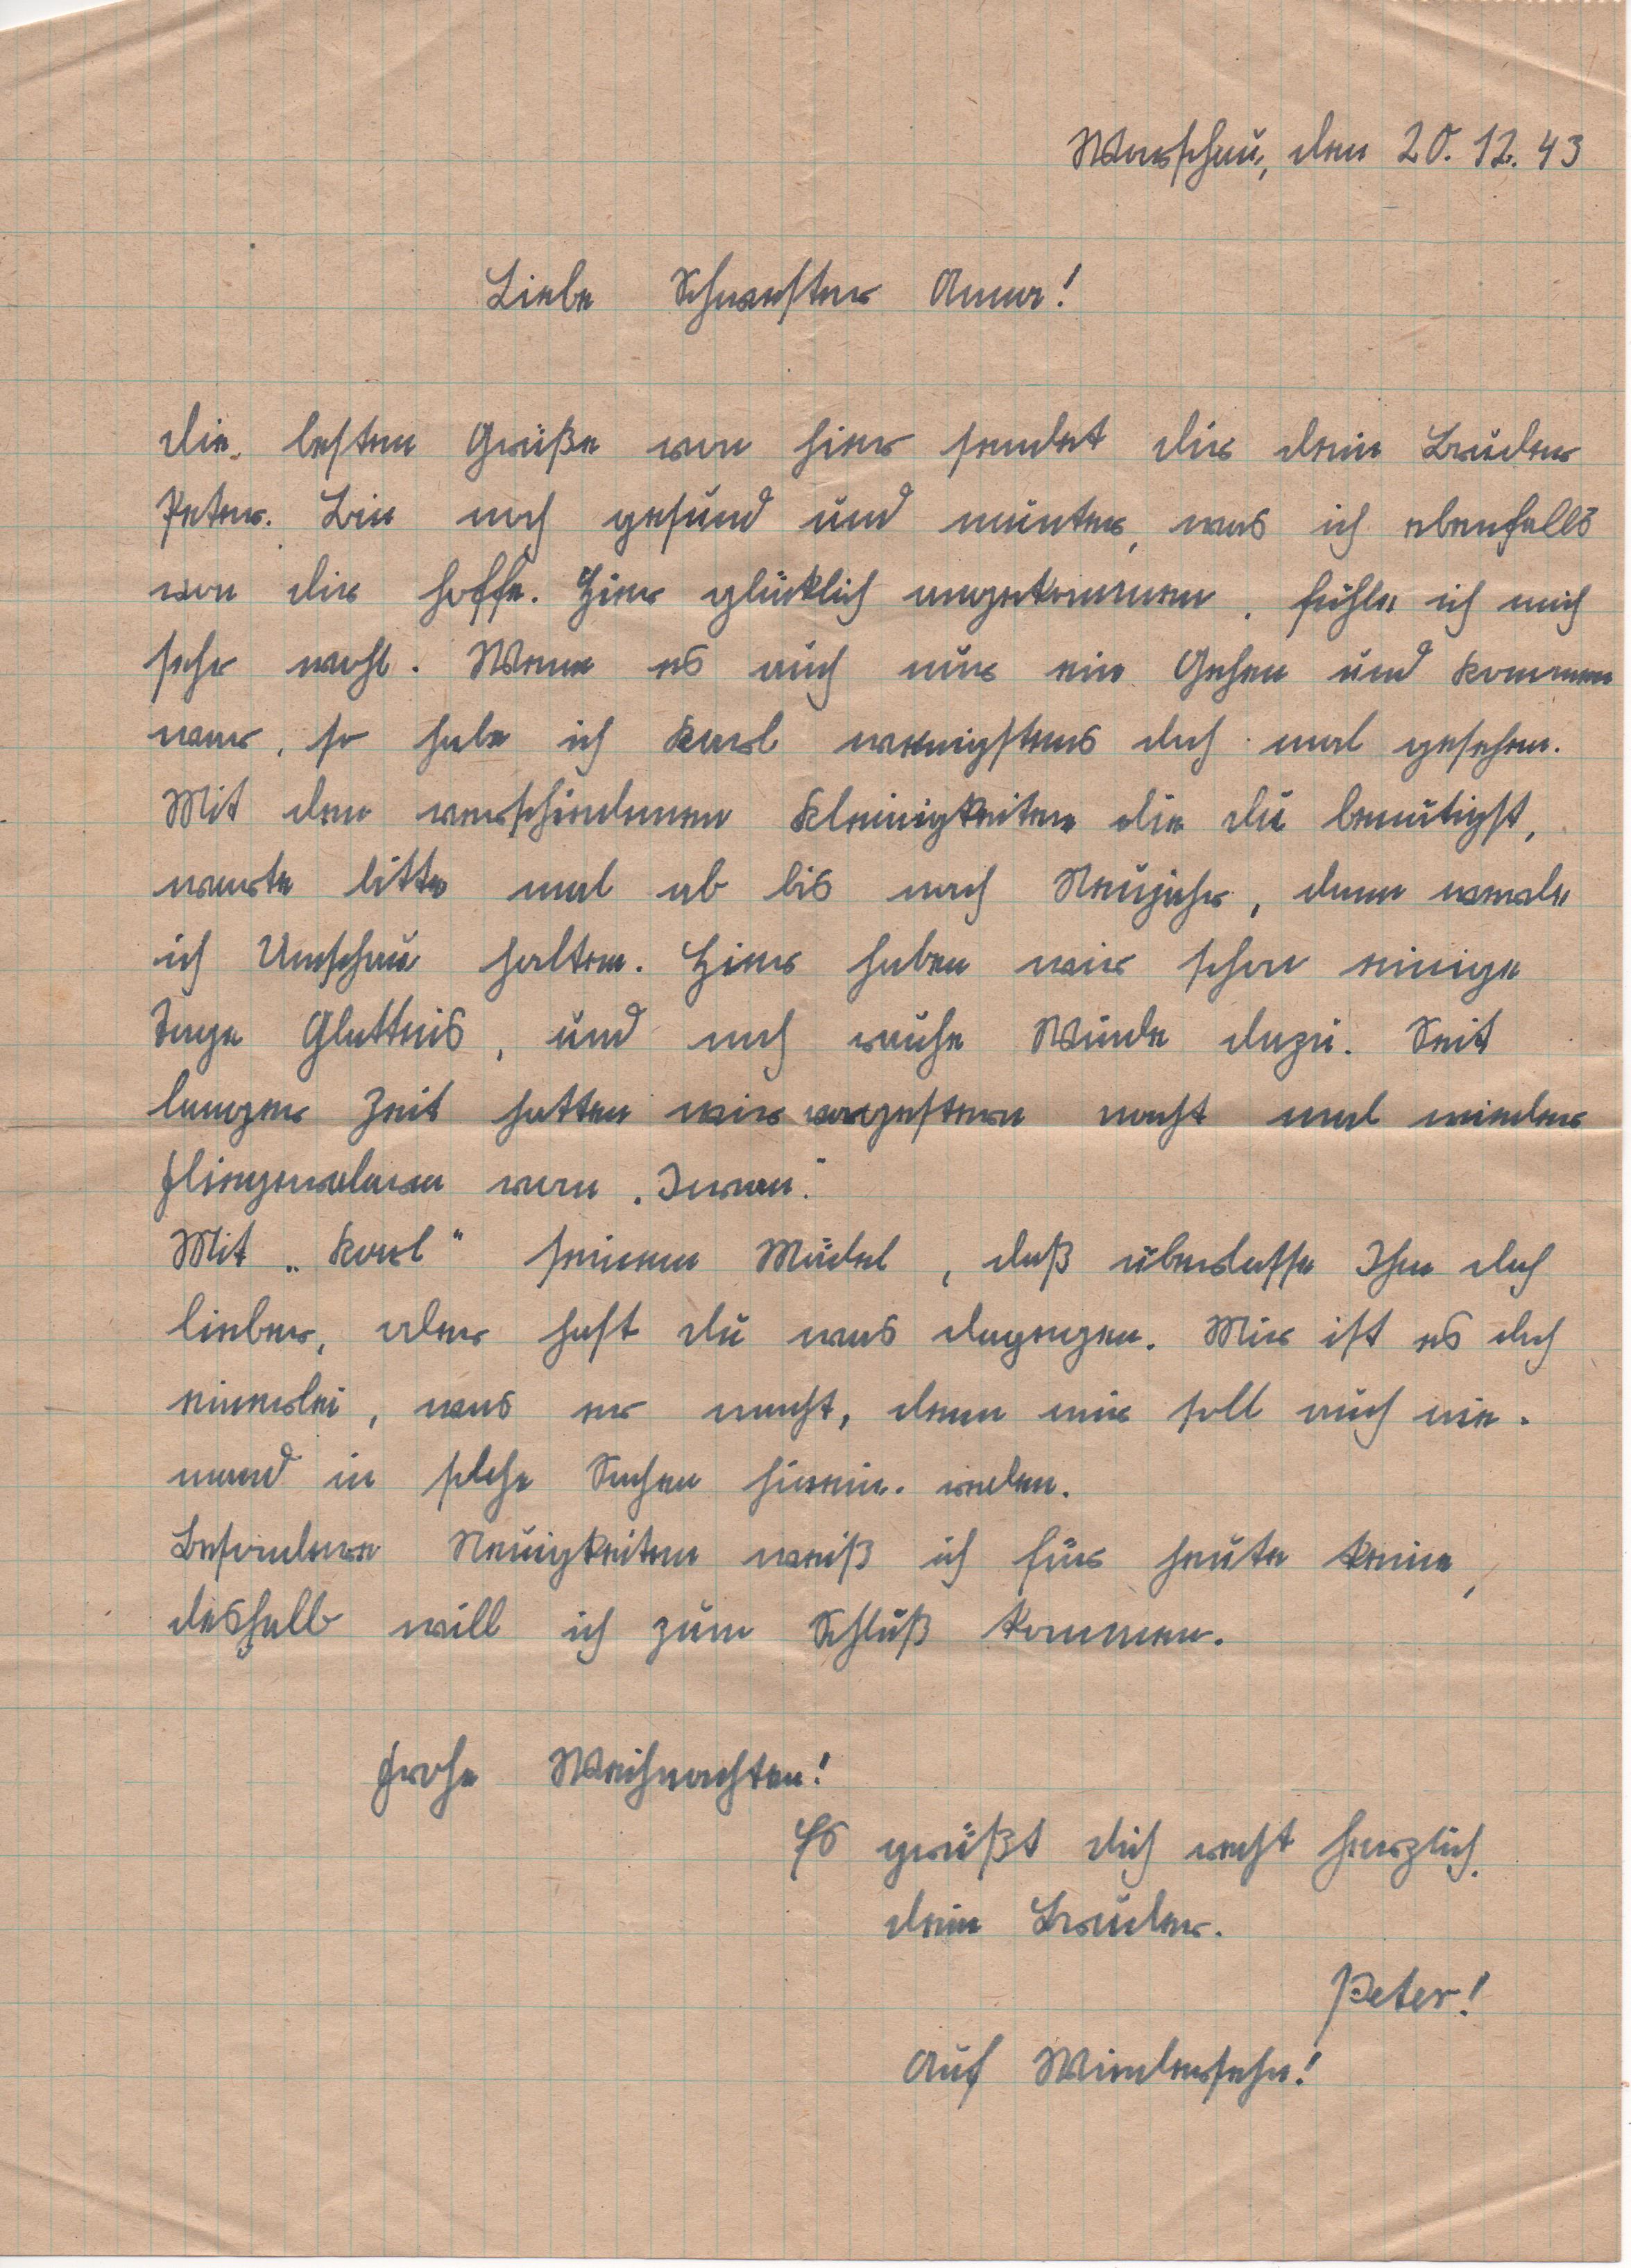 Warschau, den 20.12.43
Liebe Schwester Anna!
die besten Grüße von hier sendet dir dein Bruder
Peter. Bin noch gesund und munter, was ich ebenfalls
von dir hoffe. Hier glücklich angekommen, fühle ich mich
sehr wohl. Wenn es auch nur ein Gehen und kommen
war, so habe ich Karl wenigstens doch mal gesehen.
Mit den verschiedenen Kleinigkeiten die du benötigst,
warte bitte mal ab bis nach Neujahr, dann werde
ich Umschau halten. Hier haben wir schon einige
Tage Glattnis, und noch rauhe Winde dazu. Seit
langer Zeit hatten wir vorgestern nacht mal wieder
fliegeralarm vom „Iwan".
Mit „Karl" seinem Mädel, daß überlasse Ihm doch
lieber, oder hast du was dagegen. Mir ist es doch
einerlei, was er macht, denn mir soll auch nie-
mand in solche Sachen hinein-reden.
Besondere Neuigkeiten weiß ich für heute keine,
deshalb will ich zum Schluß kommen.
frohe Weihnachten!
Es grüßt dich recht herzlich.
dein Bruder.
Peter!
Auf Wiedersehn!